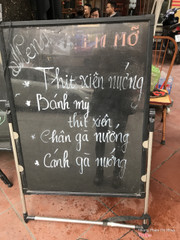 Nem
* Thịt xiên nướng
* Bánh mỳ
thịt xiên
* Chân gà nướng
* Cánh gà nướng